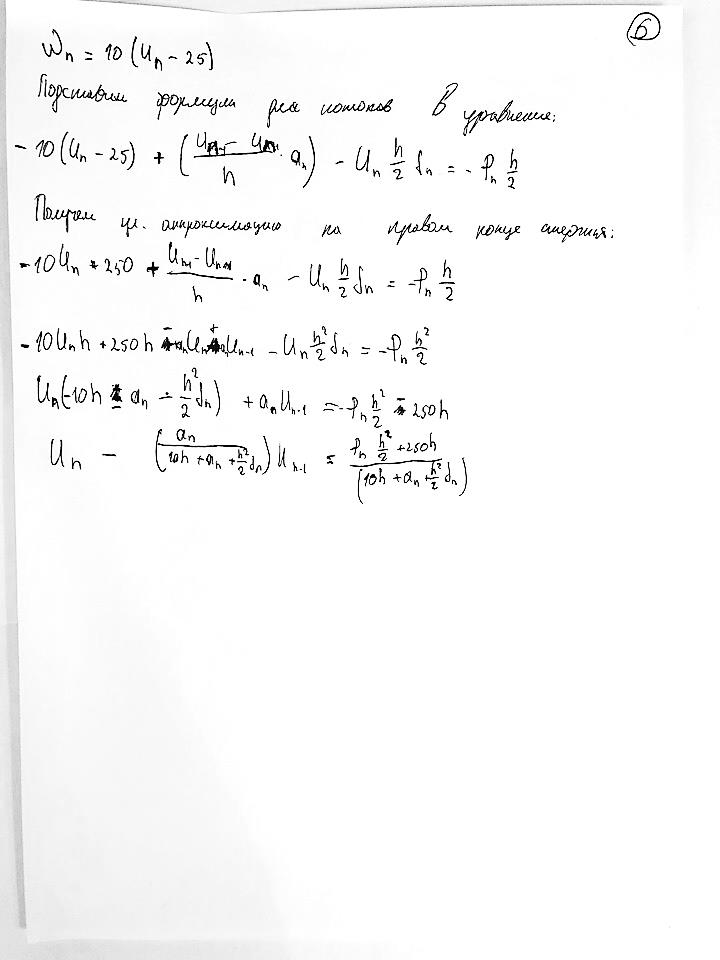 6
Wₙ = 10 (Uₙ − 25)
Подставим формулы для потоков в уравнения:
− 10 (Uₙ − 25) + ( / h · aₙ) − Uₙ h/2 dₙ = − Pₙ h/2
Получим ур. аппроксимацию на правом конце стержня:
− 10Uₙ + 250 + / h · aₙ − Uₙ h/2 dₙ = −Pₙ h/2
− 10Uₙh + 250h − aₙUₙ + aₙUₙ₋₁ − Uₙ h²/2 dₙ = −Pₙ h²/2
Uₙ(−10h − aₙ − h²/2 dₙ) + aₙUₙ₋₁ = −Pₙ h²/2 − 250h
Uₙ − (aₙ / (10h + aₙ + h²/2 dₙ)) Uₙ₋₁ = (Pₙ h²/2 + 250h) / (10h + aₙ + h²/2 dₙ)